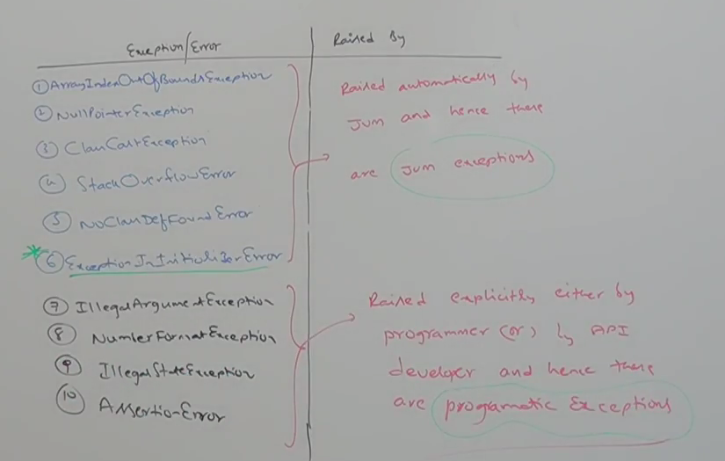 Exception/Error
Raised By
① ArrayIndexOutOfBoundsException
② NullPointerException
③ ClassCastException
④ StackOverflowError
⑤ NoClassDefFoundError
* ⑥ ExceptionInInitializerError
Raised automatically by
JVM and hence these
are JVM exceptions
⑦ IllegalArgumentException
⑧ NumberFormatException
⑨ IllegalStateException
⑩ AssertionError
Raised explicitly either by
programmer (or) by API
developer and hence these
are programatic Exceptions